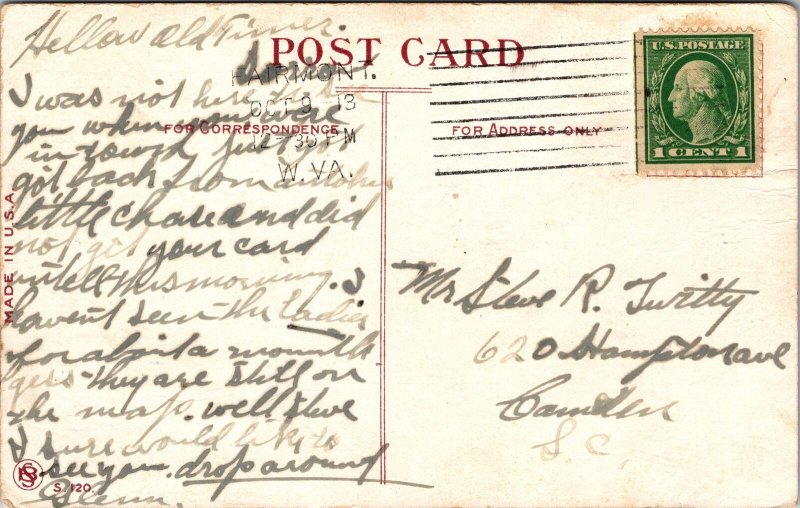 Hellow old Timer.
POST CARD
FAIRMONT.
OCT 9 13
12-30 PM
W. VA.
FOR CORRESPONDENCE
FOR ADDRESS ONLY
U.S. POSTAGE
1 CENT 1
I was not here
you when you were
in town, just
got back from another
little chase and did
not get your card
untell this morning. I
havent seen the Ladies
for about a mounth
gess they are still on
the map. well Steve
I sure would like to
see you. drop around
Glenn.
Mr Steve R. Twitty
620 Hampton ave
Camden
S.C.
MADE IN U.S.A.
S. 120.